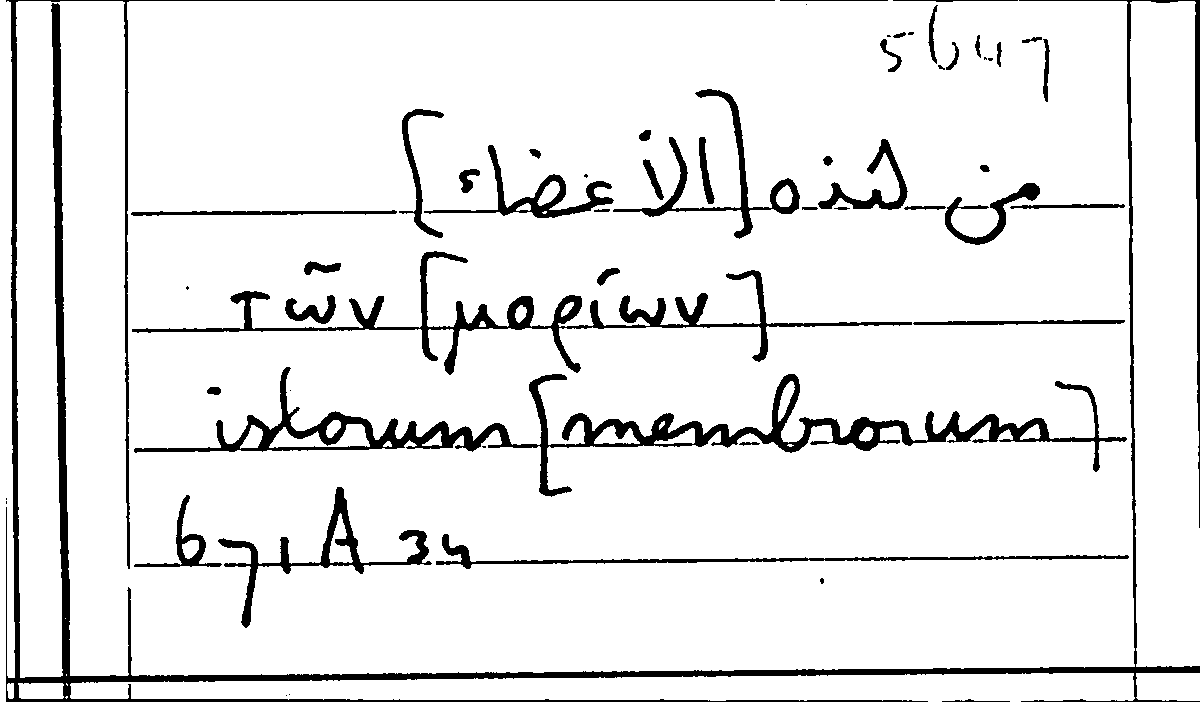 5647
من هذه [الأعضاء]
τῶν [μορίων]
istorum [membrorum]
671 A 34